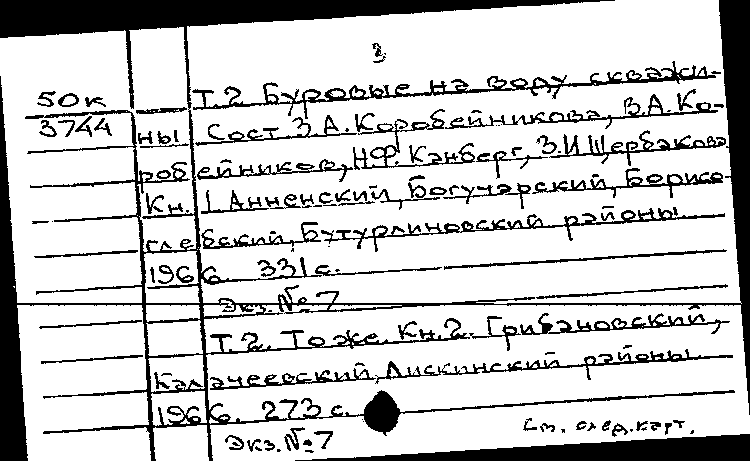 3
50к Т.2 Буровые на воду скважи-
3744 ны Сост З.А.Коробейникова, В.А.Ко-
робейников, Н.Ф.Канберг, З.И Щербакова
Кн. 1 Анненский, Богучарский, Борисо-
глебский, Бутурлиновский районы
1966. 331 с.
Экз. №7
Т.2. То же. Кн.2. Грибановский,
Калачеевский, Лискинский районы
1966. 273 с.
Экз. №7 См. след. карт.